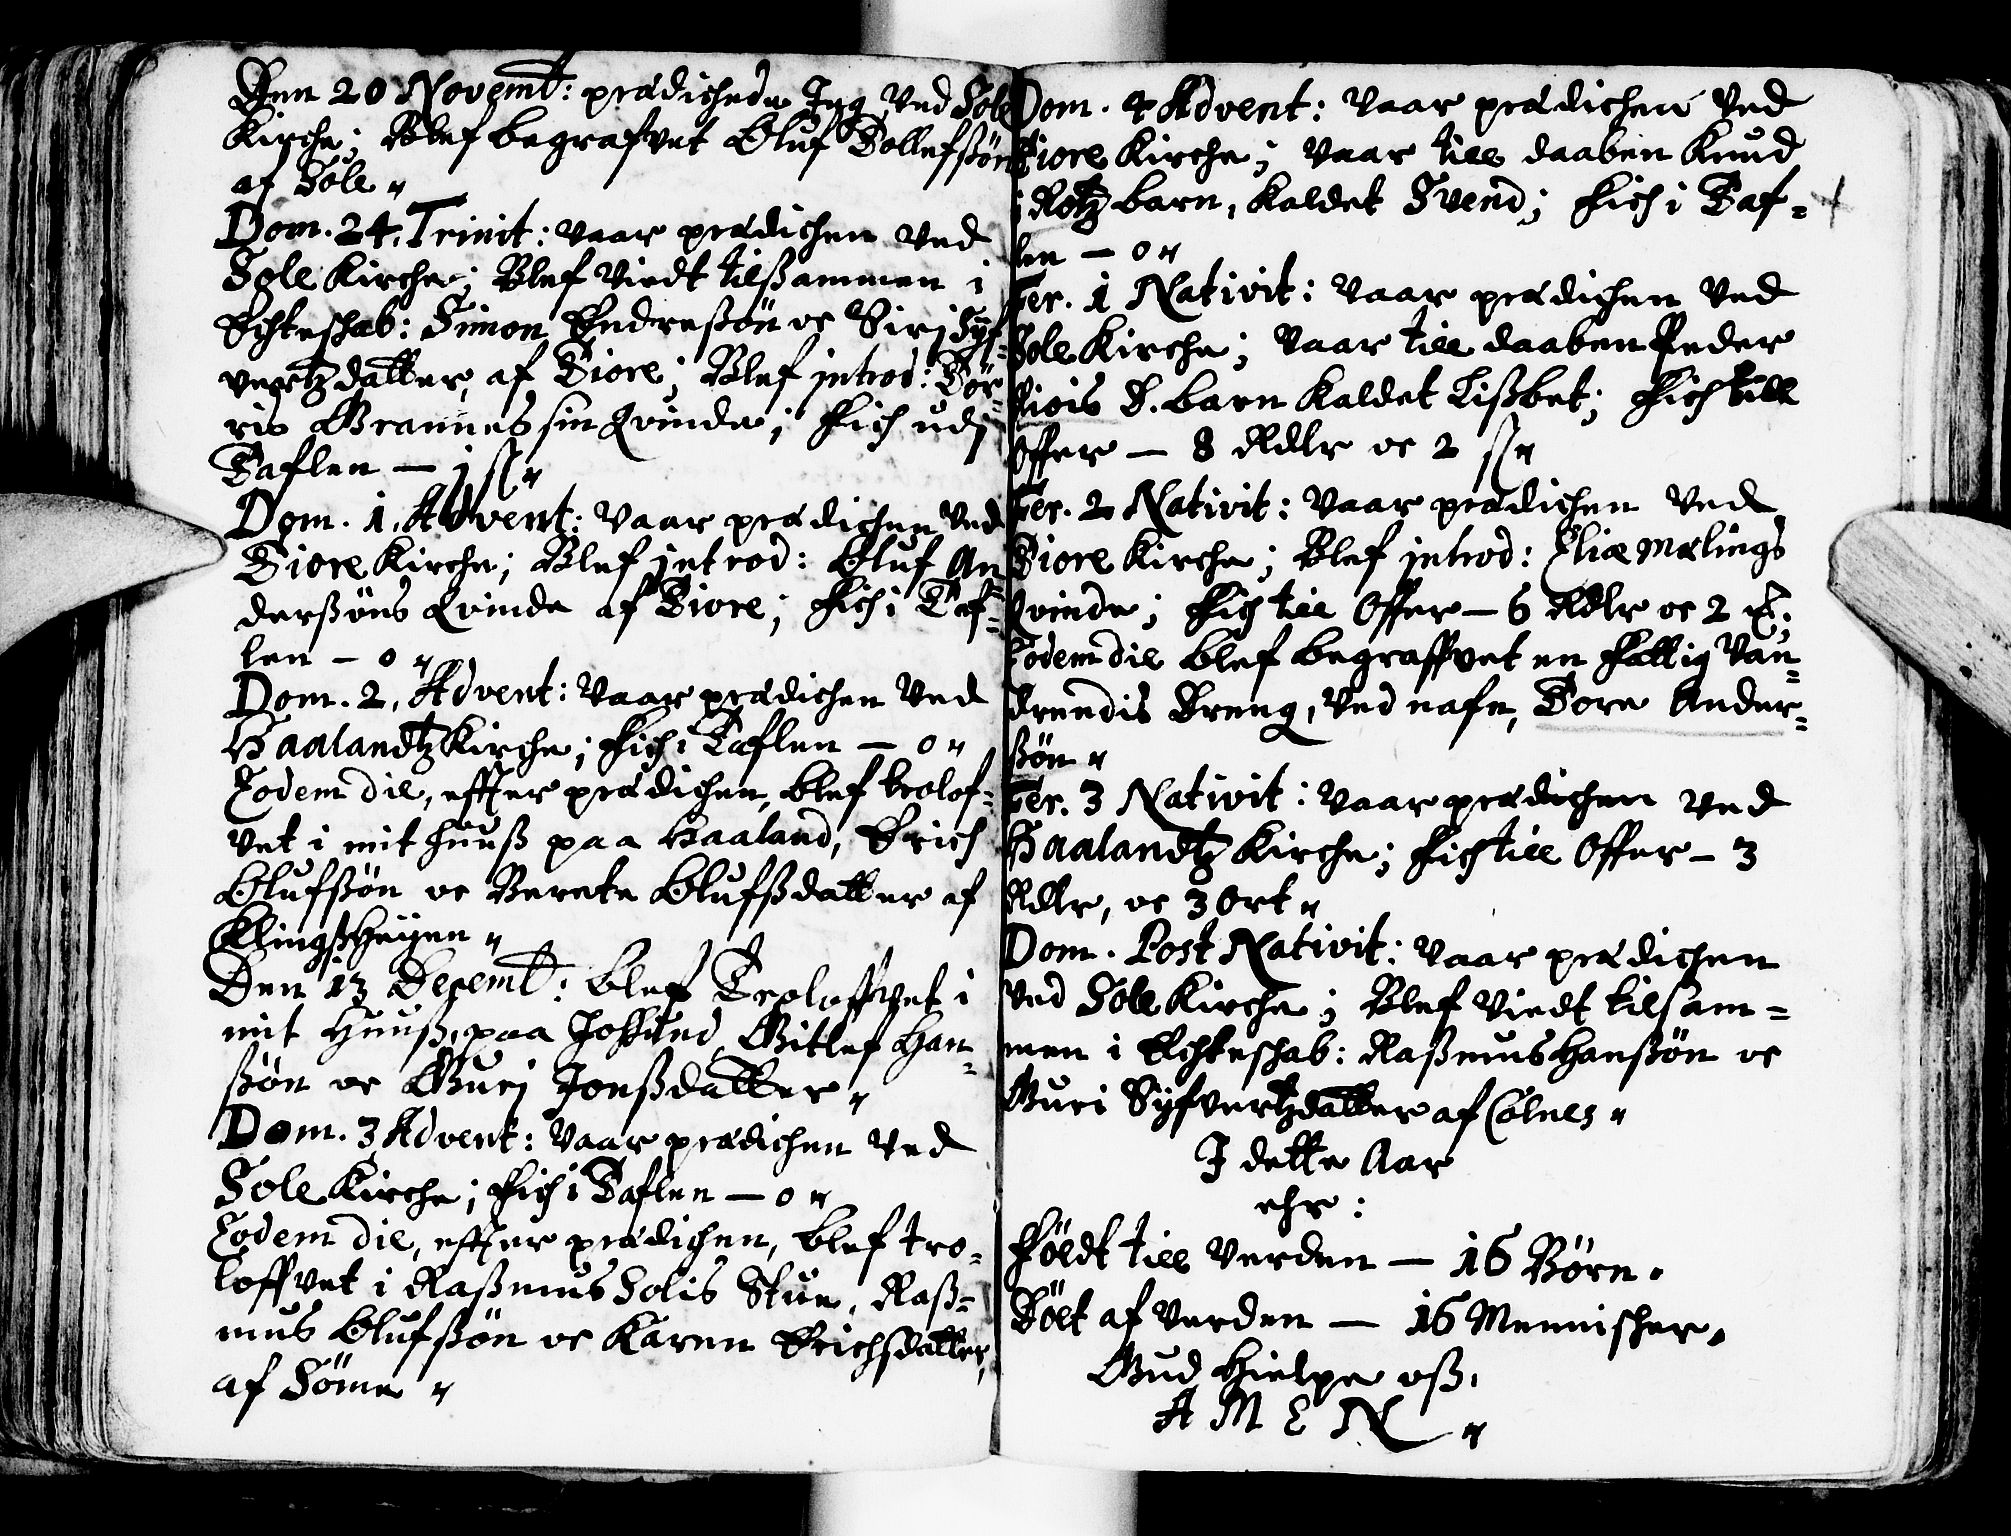 Den 20 Novemb: prædichede Jeg ved Sole
Kirche; Blef begrafvet Oluf Tollefßön
af Sole"
Dom. 24. Trinit: vaar prædichen ved
Sole Kirche; Blef viedt tilßammen i
Echteschab: Simon Endreßön oc Siri Syf-
vertzdatter, af Tiore; Blef introd: Tör-
ris Grannes sin Qvinde; Fich udj
Taflen — j ß"
Dom. 1. Advent: vaar prædichen ved
Tiore Kirche; Blef introd: Oluf An-
derßöns Qvinde af Tiore; Fich i Taf-
len — 0"
Dom. 2. Advent: vaar prædichen ved
Haalandtz Kirche; Fich i Taflen — 0"
Eodem die, effter prædichen, blef trolof-
vet i mit huuß paa Haaland, Erich
Olufßön oc Berete Olufßdatter af
Klingßheyen"
Den 13 Decemb: blef Troloffvet i
mit Huuß, paa Joßund Gitlef Han-
ßön oc Guri Jonßdatter"
Dom. 3 Advent: vaar prædichen ved
Sole Kirche; Fich i Taflen — 0"
Eodem die, effter prædichen, blef tro-
loffvet i Raßmus Solis Stue, Raß-
mus Olufßön oc Karen Erichsdatter,
af Söme"
Dom. 4 Advent: vaar prædichen ved
Tiore Kirche; vaar till daaben Knud
i Rotz barn, kaldet Svend; Fich i Taf-
len — 0"
Fer. 1 Nativit: vaar prædichen ved
Sole Kirche; vaar till daaben Peder
S. barn kaldet Lißbet; Fich till
Offer — 8 Rdlr oc 2 ß"
Fer. 2 Nativit: vaar prædichen ved
Tiore Kirche; Blef introd: Eliæ Mælings
Qvinde; Fich till Offer — 6 Rdlr oc 2
Eodem die blef begraffvet en fattig Van-
drendis Dreng, ved nafn, Tore Ander-
ßön"
Fer. 3 Nativit: vaar prædichen ved
Haalandtz Kirche; Fich till Offer — 3
Rdlr, oc 3 Ort"
Dom. Post Nativit: vaar prædichen
ved Sole Kirche; Blef viedt tilsam-
men i Echteschab: Raßmus Hanßön oc
Guri Syfvertzdatter af Colnes"
I dette Aar
ehr:
Födt till verden — 16 Börn.
Döt af verden — 16 Mennisker.
Gud hielpe oß.
AMEN"